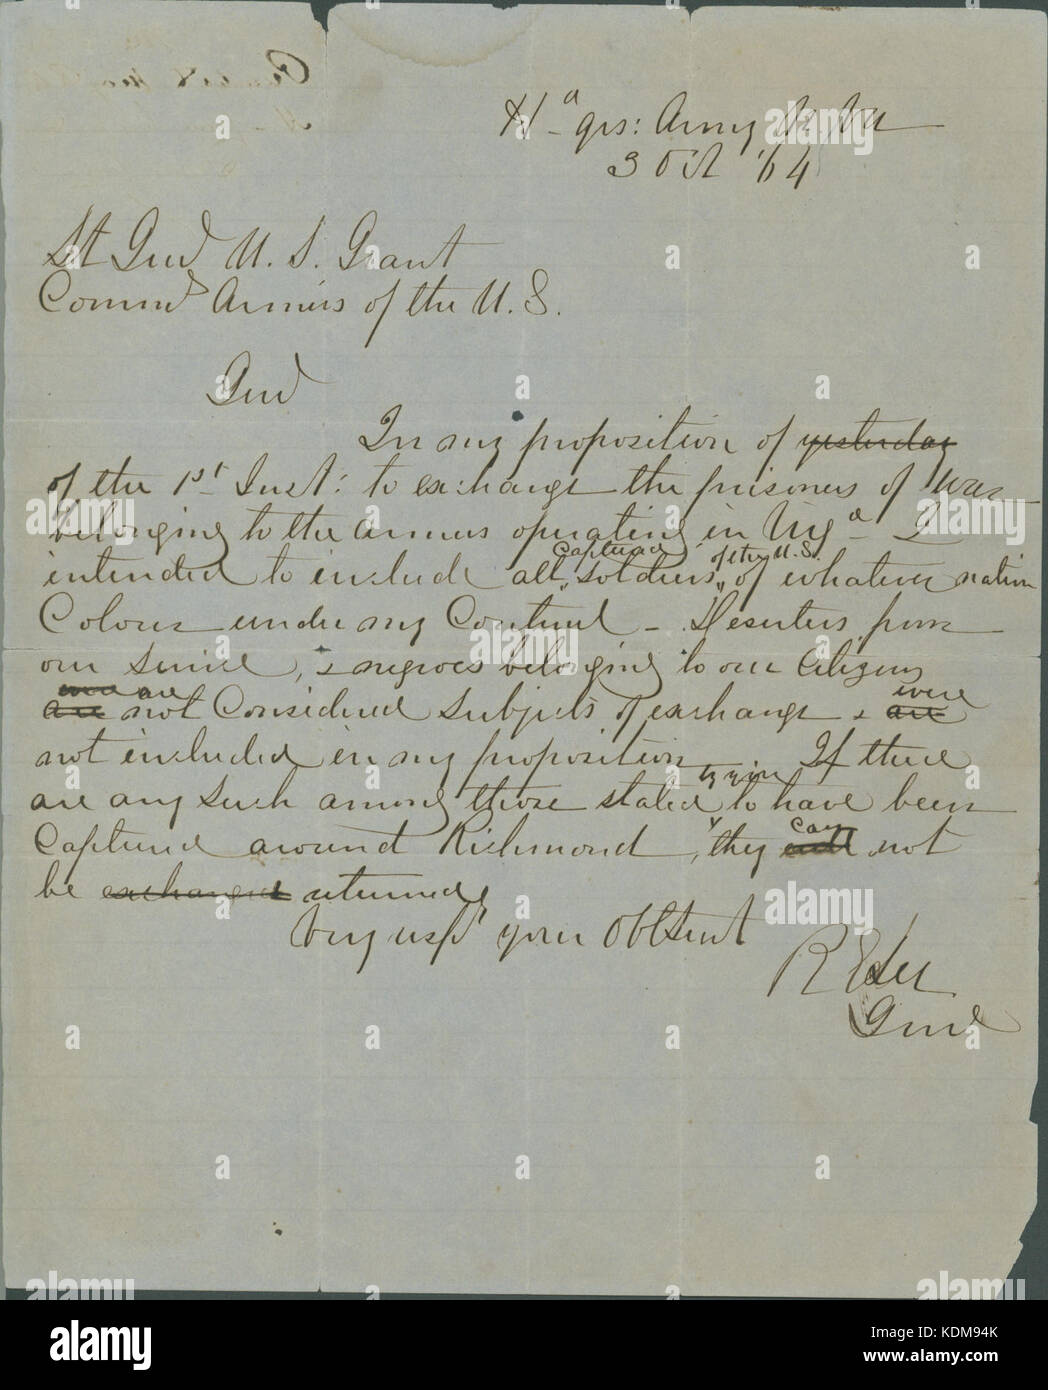 Hd qrs: Army N. Va
3 Oct '64
Lt Genl U. S. Grant
Commd Armies of the U. S.
Genl
In my proposition of yesterday
of the 1st Inst: to exchange the prisoners of war
belonging to the armies operating in Virga - I
intended to include all captured soldiers of the U. S. of whatever nation
Colour under my Control - Deserters from
our service, & negroes belonging to our Citizens
are were are not Considered subjects of exchange & are were
not included in my proposition If there
are any such among those stated by you to have been
Captured around Richmond, they can not
be exchanged returned
Very respt your Obt Servt
R E Lee
Genl
alamy stock photo
KDM94K
www.alamy.com